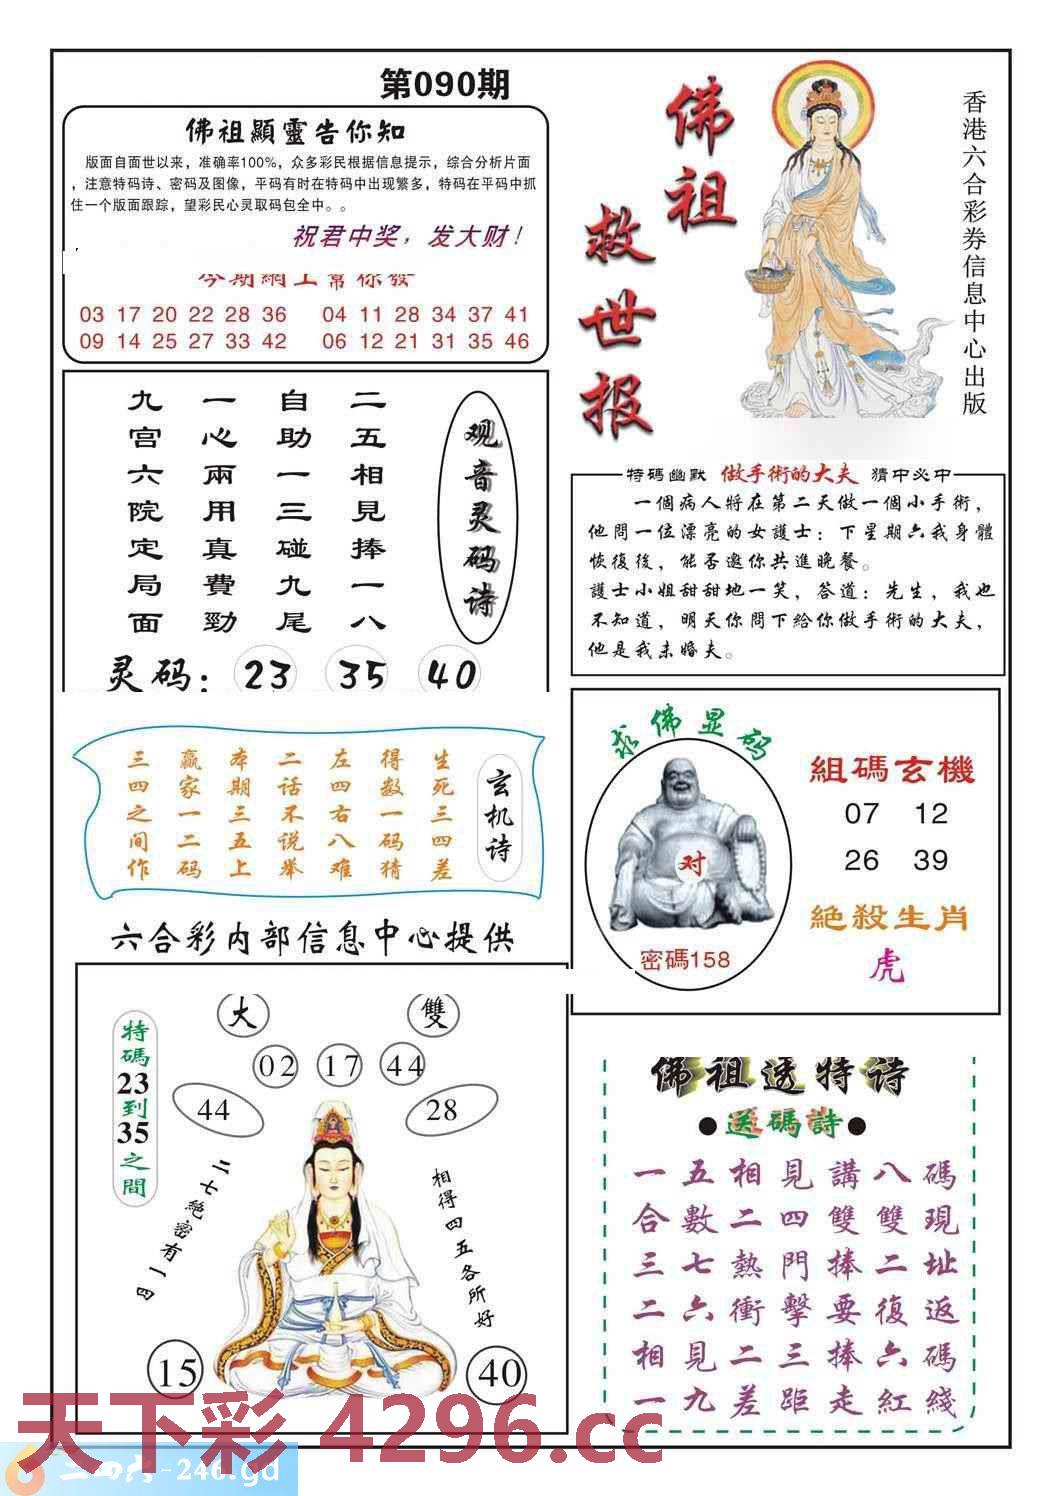 第090期
佛祖顯靈告你知
版面自面世以来，准确率100%，众多彩民根据信息提示，综合分析片面
，注意特码诗、密码及图像，平码有时在特码中出现繁多，特码在平码中抓
住一个版面跟踪，望彩民心灵取码包全中。。
祝君中奖，发大财！
今期網上幫你發
03 17 20 22 28 36 04 11 28 34 37 41
09 14 25 27 33 42 06 12 21 31 35 46
佛祖
救世报
香港六合彩券信息中心出版
观音灵码诗
二五相見捧一八
自助一三碰九尾
一心兩用真費勁
九宫六院定局面
灵码：23 35 40
特碼幽默 做手術的大夫 猜中必中
一個病人將在第二天做一個小手術，
他問一位漂亮的女護士：下星期六我身體
恢復後，能否邀你共進晚餐。
護士小姐甜甜地一笑，答道：先生，我也
不知道，明天你問下給你做手術的大夫，
他是我未婚夫。
玄机诗
生死三四差
得数一码猜
左四右八难
二话不说举
本期三五上
赢家一二码
三四之间作
求佛显码
对
密碼158
組碼玄機
07 12
26 39
絕殺生肖
虎
六合彩内部信息中心提供
大 雙
02 17 44
44 28
特碼23到35之間
二七絕密有一四
相得四五各所好
15 40
佛祖透特诗
●送碼詩●
一五相見講八碼
合數二四雙雙現
三七熱門捧二址
二六衝擊要復返
相見二三捧六碼
一九差距走紅綫
天下彩 4296.cc
二四六-246.gd